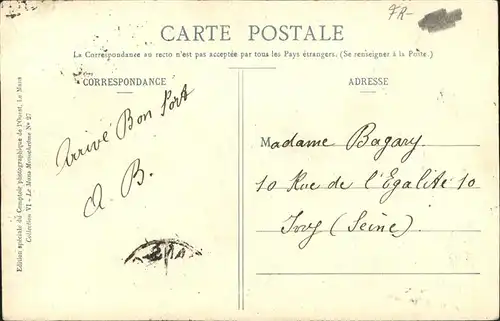 FR-
CARTE POSTALE
La Correspondance au recto n'est pas acceptée par tous les Pays étrangers. (Se renseigner à la Poste.)
CORRESPONDANCE
ADRESSE
Arrivé Bon Port
A B.
Madame Bagary
10 Rue de l'Egalité 10
Ivry (Seine)
Edition spéciale du Comptoir photographique de l'Ouest, Le Mans
Collection VI - Le Mans Monumental N° 27